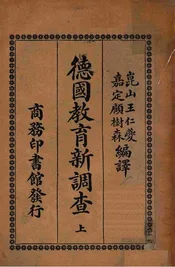 崑山王仁夔
嘉定顧樹森
編譯
德國教育新調查
上
商務印書館發行